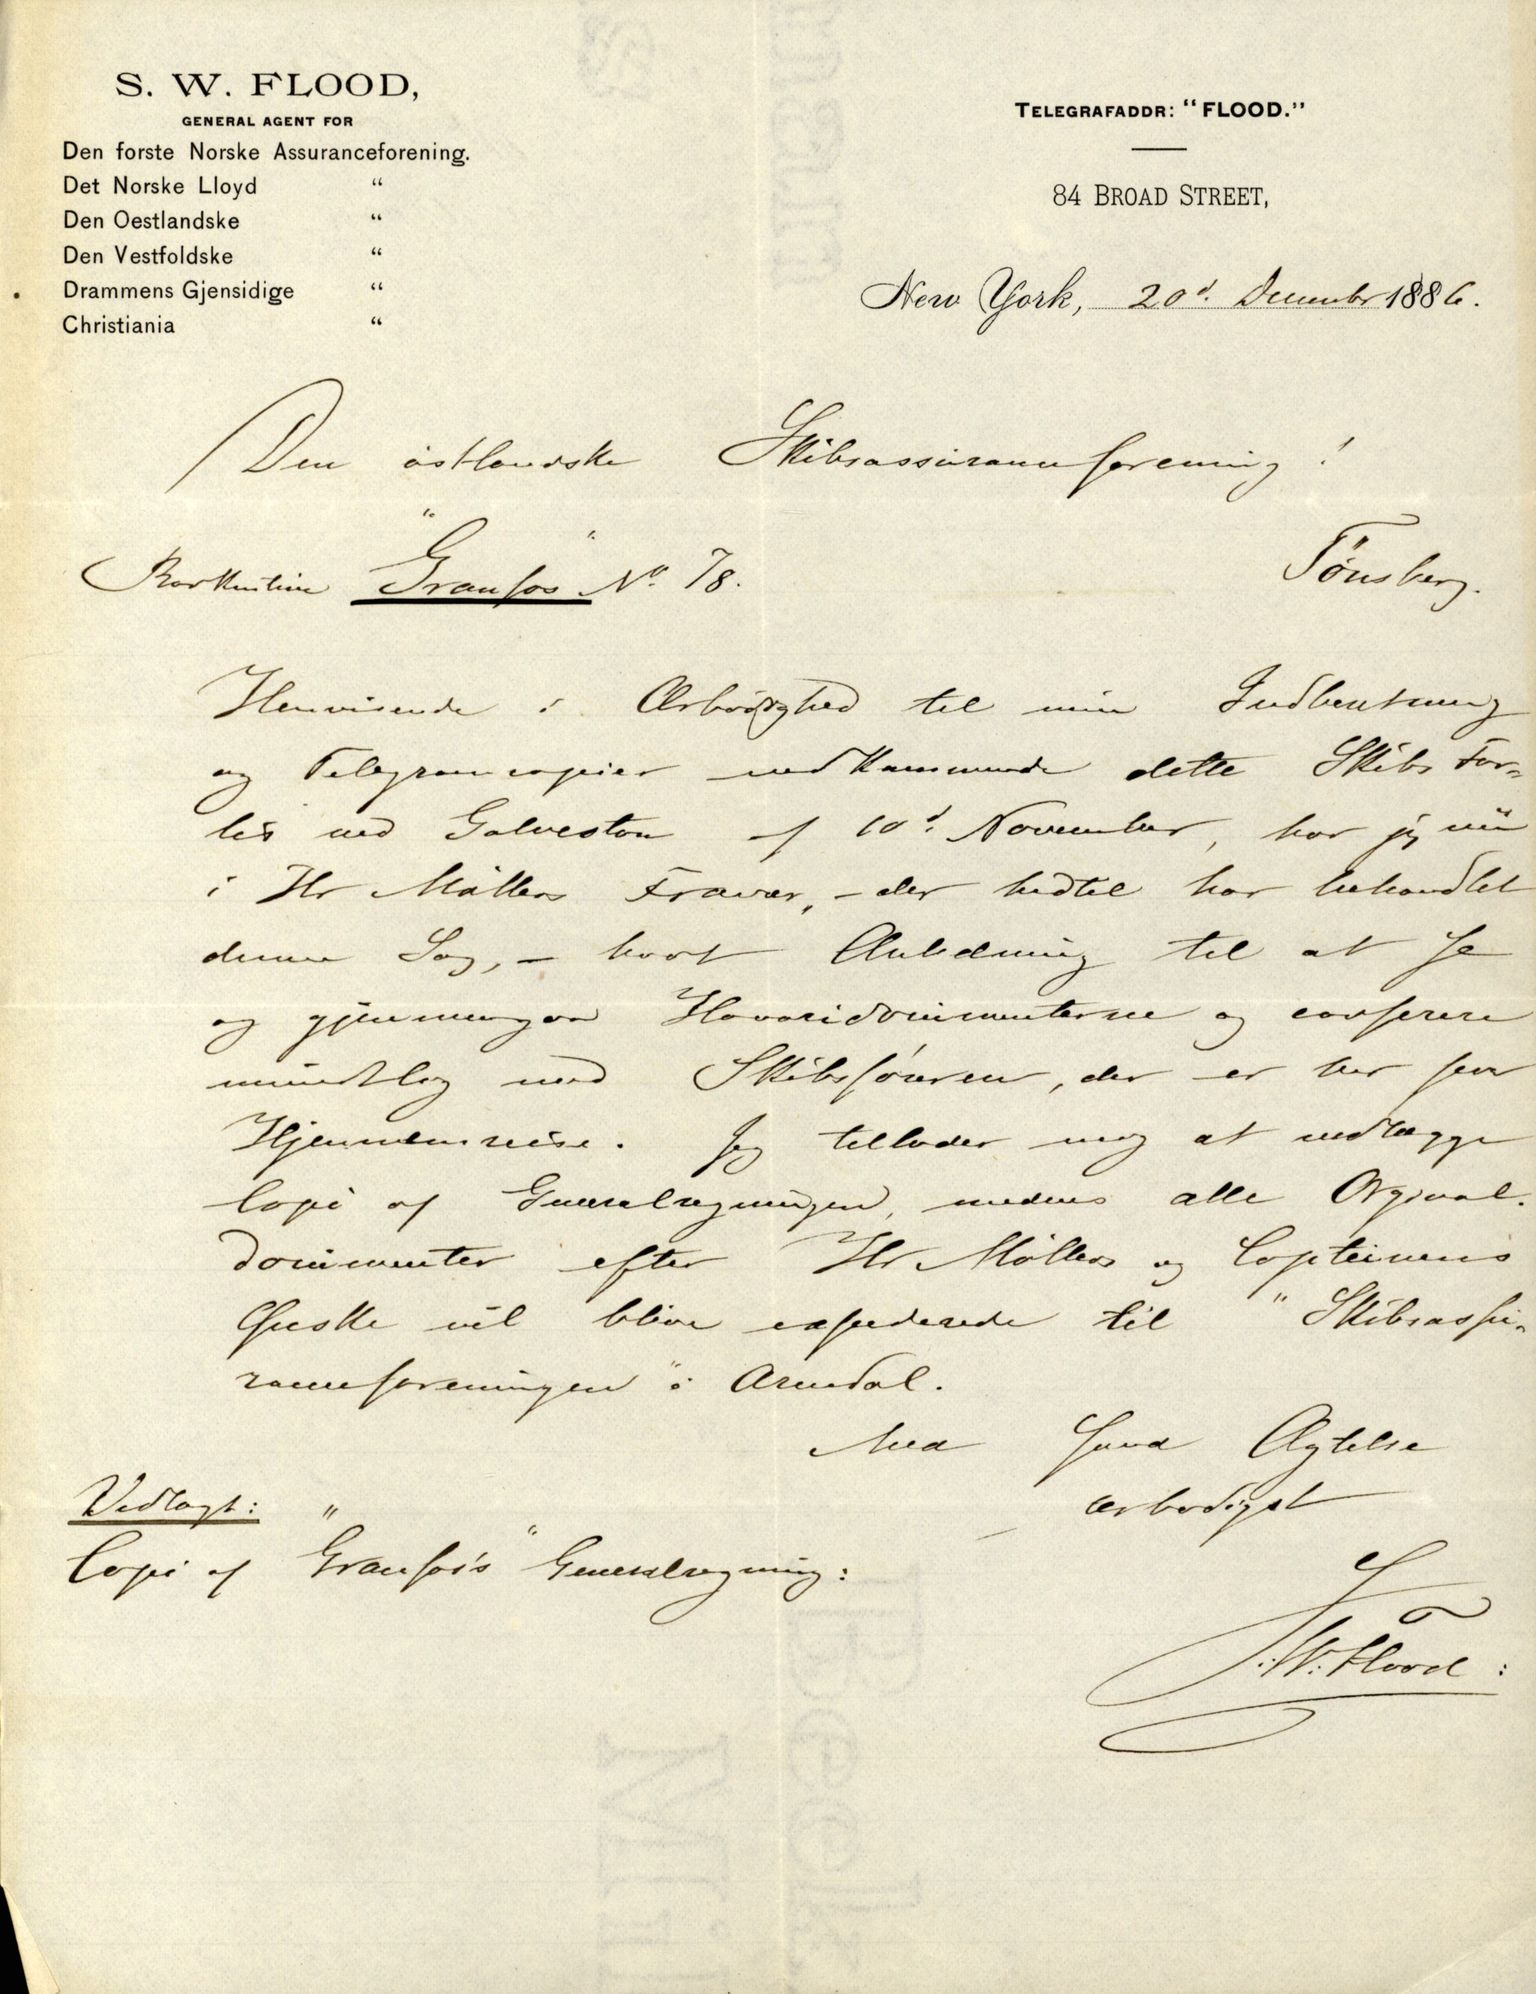 S. W. FLOOD,
GENERAL AGENT FOR
Den forste Norske Assuranceforening.
Det Norske Lloyd "
Den Oestlandske "
Den Vestfoldske "
Drammens Gjensidige "
Christiania "
TELEGRAFADDR: "FLOOD."
84 BROAD STREET,
New York, 20d. December 1886.
Den östlandske Skibsassuranceforening!
Tönsberg.
Barkentine "Granfos" No 78.
Henvisende i Ærbödighed til min Indberetning
og Telegramcopier vedkommende dette Skibs For=
lis ved Galveston af 10d. November, har jeg nu
i Hr Möllers Fravær, - der hidtil har behandlet
denne Sag, - havt Anledning til at se
og gjennemgaa Havaridocumenterne og conferere
mundtlig med Skibsföreren, der er her paa
Hjemreise. Jeg tillader mig at vedlægge
Copi af Generalregningen, medens alle Orginal-
documenter efter Hr Möllers og Capteinens
Önske vil blive expederede til "Skibsassu-
ranceforeningen" i Arendal.
Med Agtelse
ærbödigst
S. W. Flood:
Vedlagt:
Copi af "Granfos's" Generalregning: